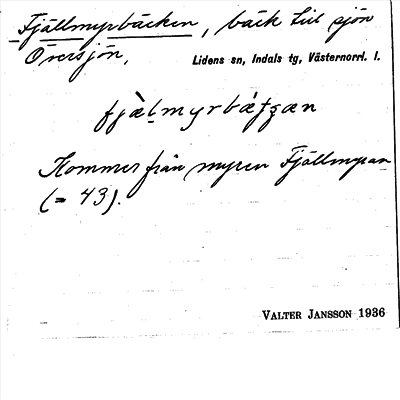 Fjällmyrbäcken, bäck till sjön
Översjön, Lidens sn, Indals tg, Västernorrl. l.
fjæ̀lmyrbæ̀kæn
Kommer från myren Fjällmyran
(= 43).
VALTER JANSSON 1936